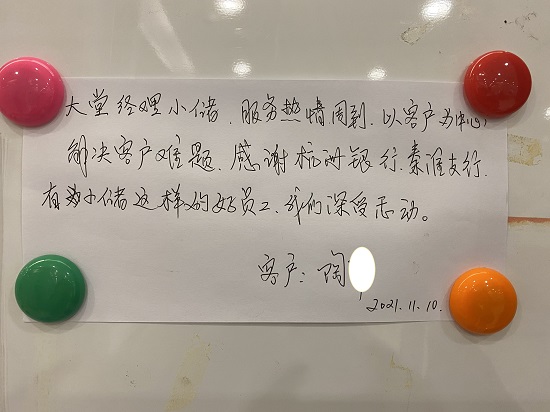 大堂经理小储、服务热情周到、以客户为中心,
解决客户难题、感谢杭州银行、秦淮支行、
有小储这样的好员工、我们深受感动。
客户：陶
2021.11.10.